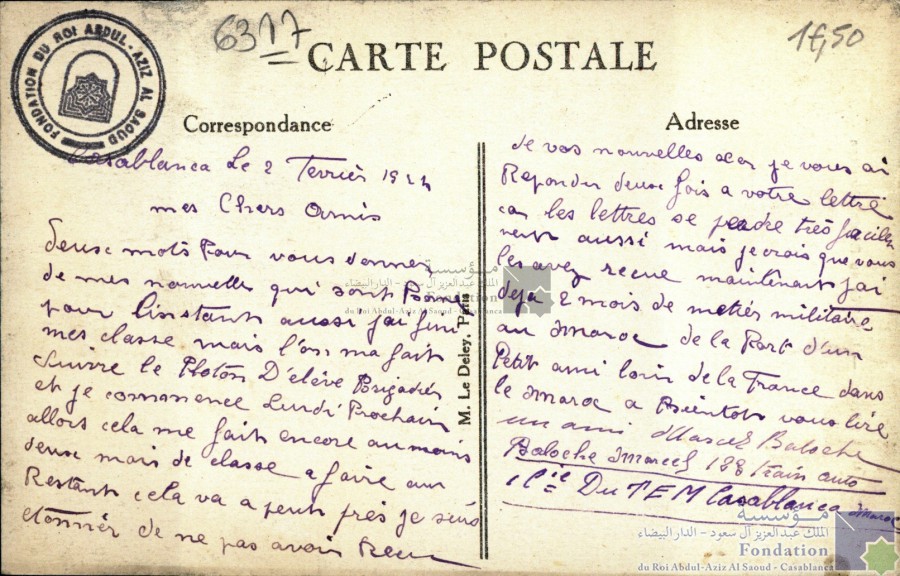 FONDATION DU ROI ABDUL-AZIZ AL SAOUD
6317
1f,50
CARTE POSTALE
Correspondance
Adresse
Casablanca Le 2 Fevrier 1924
mes Chers Amis
deux mots Pour vous donner
de mes nouvelle qui sont Bonne
pour l'instant aussi j'ai fini
mes classe mais l'on ma fait
suivre le Ploton D'elève Brigadier
et je commence Lundi Prochain
allors cela me fait encore au moins
deux mois de classe a faire au
Restant cela va a peut près je suis
etonnér de ne pas avoir Recu
de vos nouvelles car je vous ai
Reponder deux fois a votre lettre
car les lettres se perdre très facile
ment aussi mais je crois que vous
les avez recue maintenant j'ai
deja 2 mois de metiér militaire
au maroc de la Part d'un
Petit ami loin de la France dans
le maroc a Bientot vous lire
un ami Marcel Baloche
Baloche Marcel 188 train auto
1 Cie Du TEM Casablanca Maroc
M. Le Deley, Paris
مؤسسة
الملك عبد العزيز آل سعود - الدار البيضاء
Fondation
du Roi Abdul-Aziz Al Saoud - Casablanca
مؤسسة
الملك عبد العزيز آل سعود - الدار البيضاء
Fondation
du Roi Abdul-Aziz Al Saoud - Casablanca